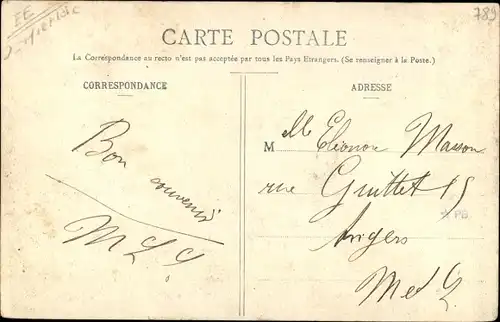 789
CARTE POSTALE
La Correspondance au recto n'est pas acceptée par tous les Pays Etrangers. (Se renseigner à la Poste.)
CORRESPONDANCE
Bon
souvenir
ADRESSE
Mlle Eléonor Masson
rue Guittet 15
Angers
M et L